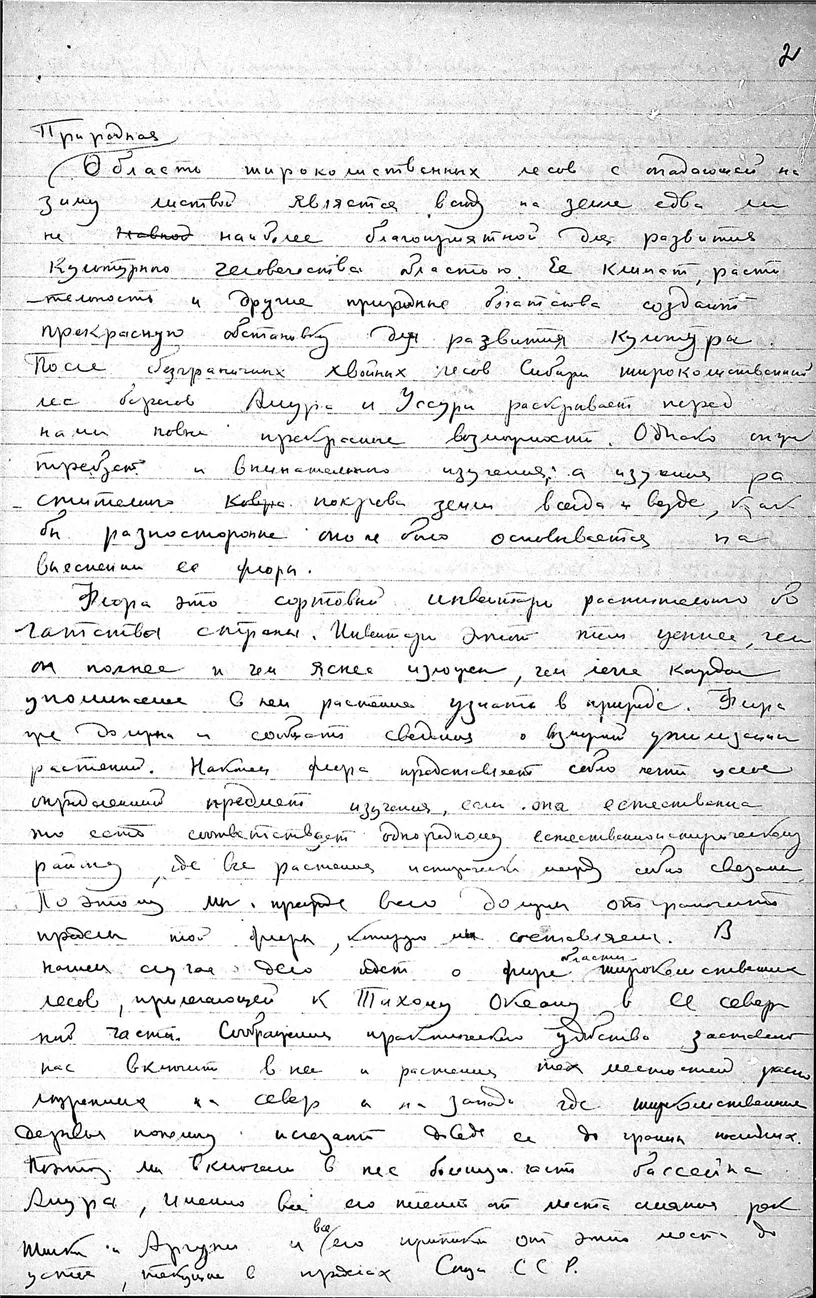 2
Природная
Область широколиственных лесов с опадающей на
зиму листвой является всюду на земле едва ли
не наиболее благоприятной для развития
культурного человечества областью. Ее климат, расти
-тельность и другие природные богатства создают
прекрасную обстановку для развития культуры.
После безграничных хвойных лесов Сибири широколиственный
лес берегов Амура и Уссури раскрывает перед
нами новые прекрасные возможности. Однако
требует и внимательного изучения, а изучение ра
-стительного ковра покрова земли всегда и везде, как
бы разносторонне оно не было основывается на
выяснении ее флоры.
Флора это сортовый инвентарь растительного бо
гатства страны. Инвентарь этот тем ценнее, чем
он полнее и чем яснее изложен, чем легче каждое
упомянутое в нем растение узнать в природе. Флора
же должна и сообщать сведения о утилизации
растений. Наконец флора представляет собою нечто целое
определенный предмет изучения, если она естественна
то есть соответствует однородному естественноисторическому
району, где все растения исторически между собою связаны.
Поэтому мы прежде всего должны отграничить
пределы той флоры, которую мы составляем. В
нашем случае дело идет о флоре области широколиственных
лесов, прилегающей к Тихому Океану в ее север
ной части. Соображения практического удобства заставляют
нас включить в нее и растения тех местностей распо
ложенных на север и на запад где широколиственные
деревья понемногу исчезают до границ последних.
Поэтому мы включаем в нее большую часть бассейна
Амура, именно все его течение от места слияния рек
Шилки и Аргуни и все его притоки от этого места до
устья, текущие в пределах Союза ССР.